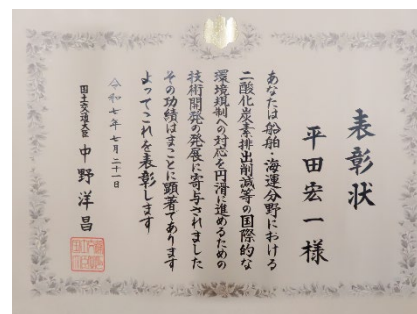 表彰状
平田宏一様
あなたは船舶・海運分野における
二酸化炭素排出削減等の国際的な
環境規制への対応を円滑に進めるための
技術開発の発展に寄与されました
その功績はまことに顕著であります
よってこれを表彰します
令和七年七月二十一日
国土交通大臣 中野洋昌